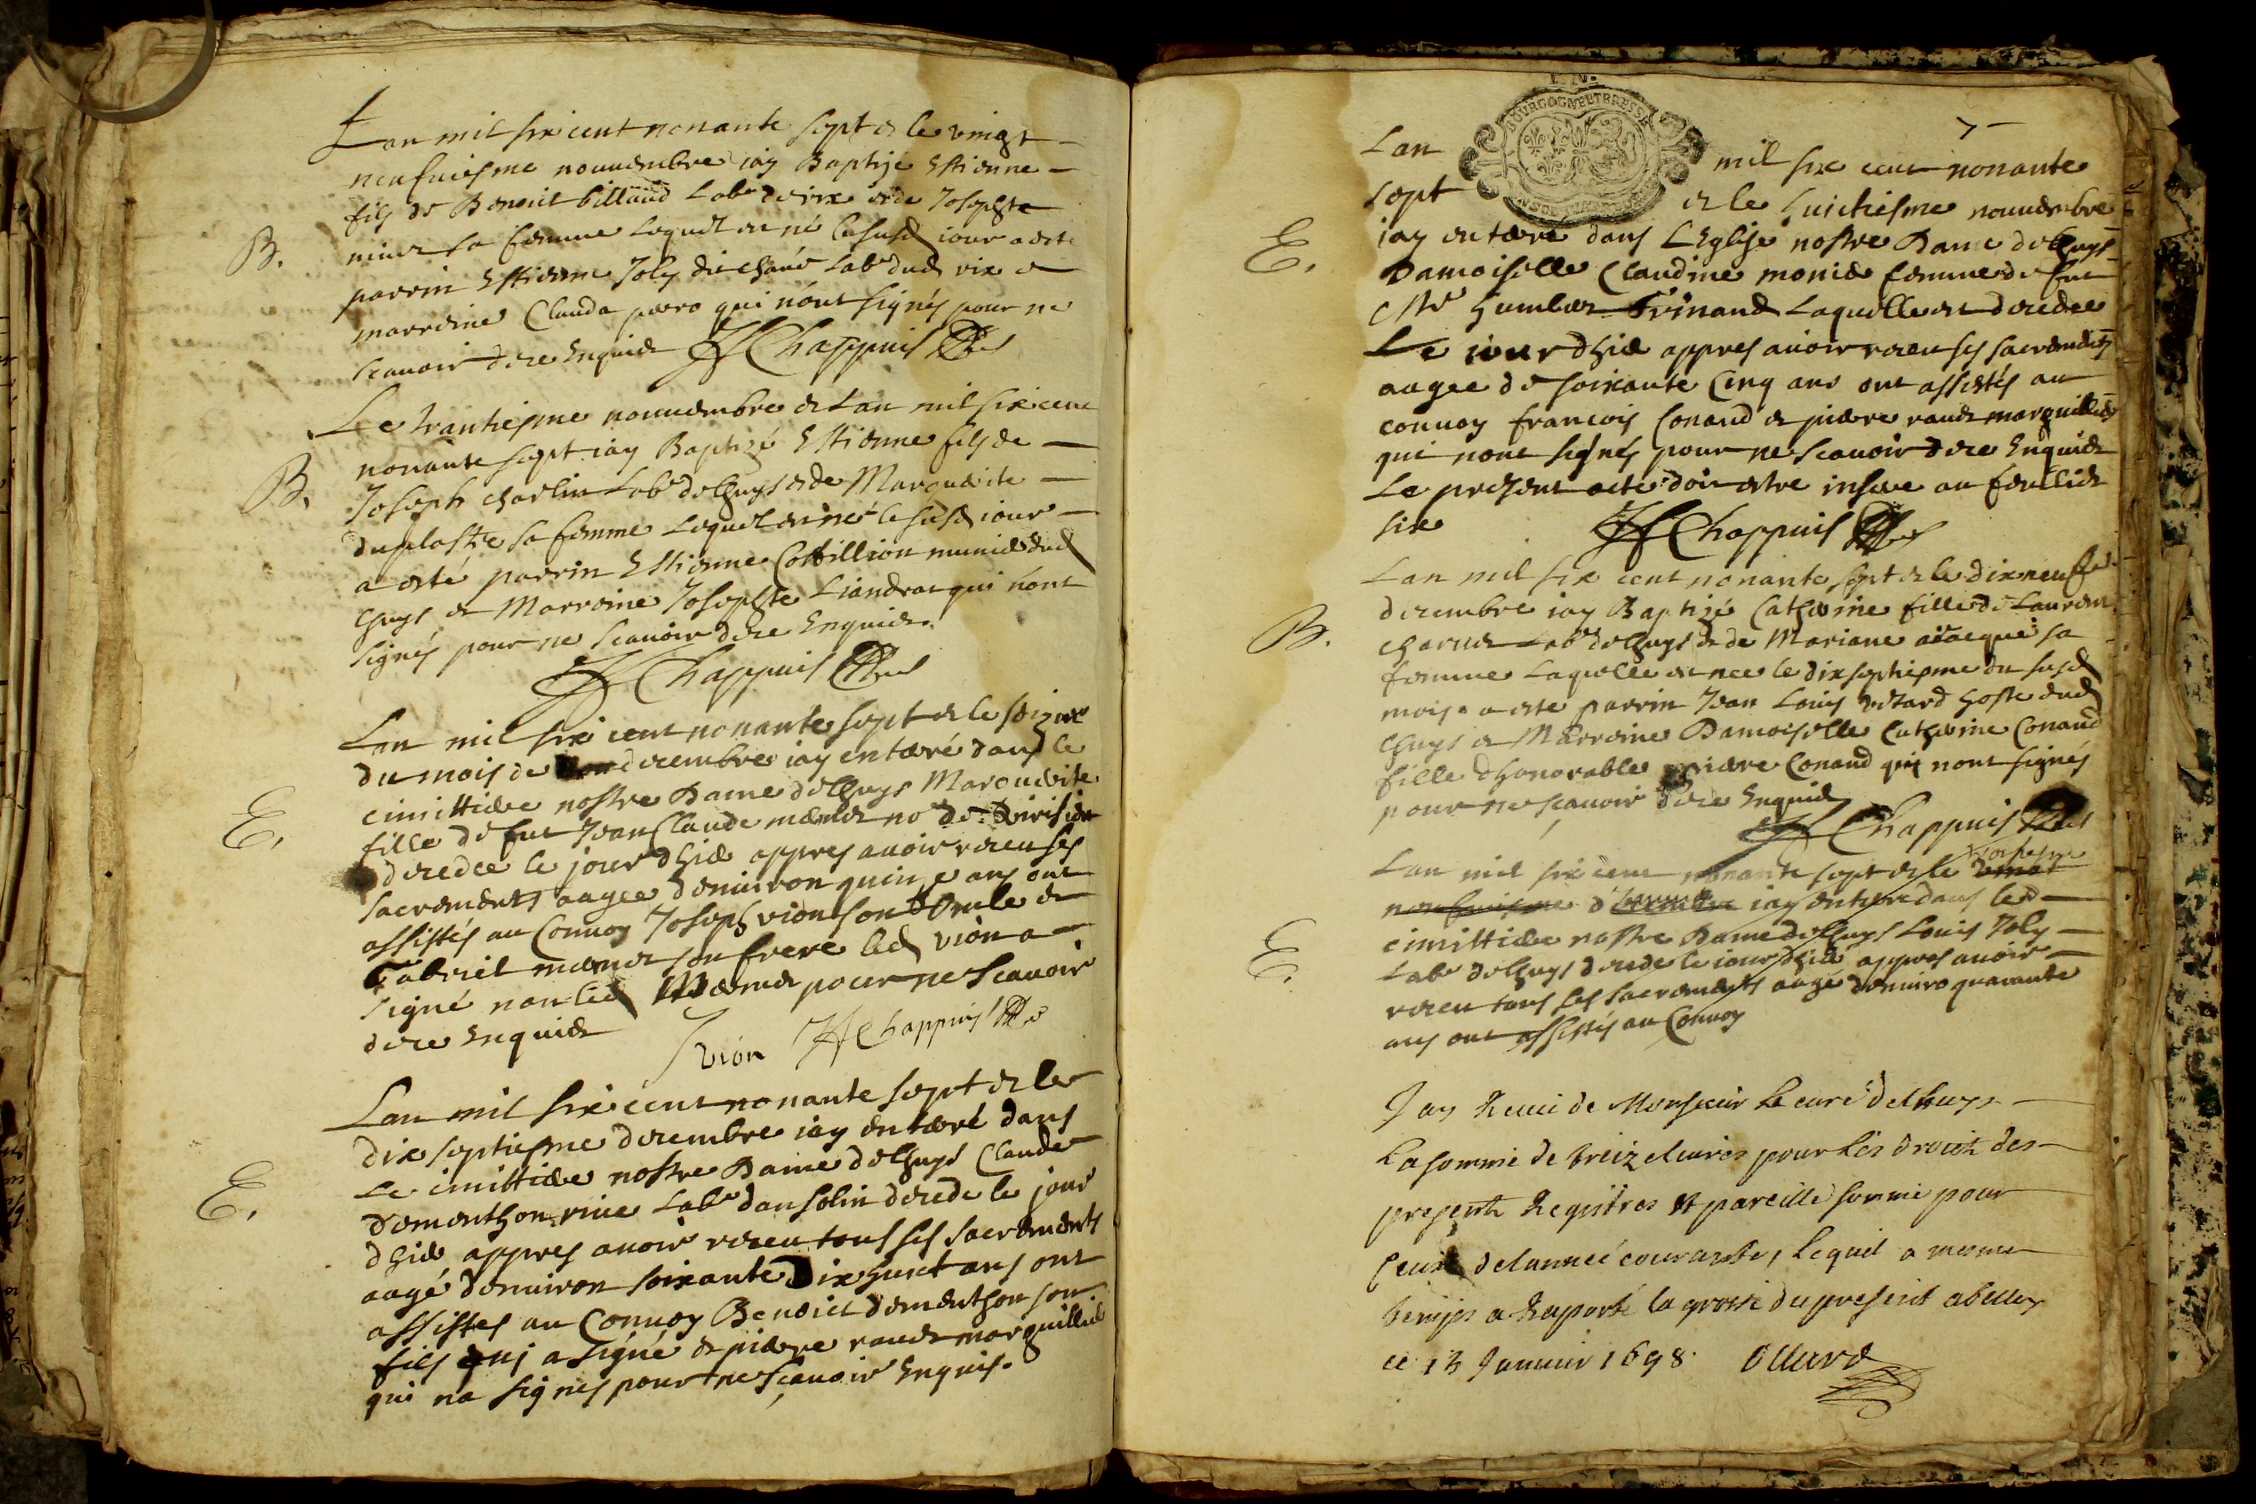 Lan mil six cent nonante sept et le vingt
neufuiesme nouuembre iay Baptisé Estienne
fils de Benoit billiaud Labr de irx et de Josephte
sa femme lequel est né le susd iour a esté
parrin Estienne Joly dit Labr dud vix et
marreine Clauda pero qui n'ont signés pour ne
scauoir de ce Enquis Chappuis
B.
Le trantiesme nouuembre et Lan mil six cent
nonante sept iay Baptizé Estienne fils de
Joseph charlin Labr de Lhuys et de Marguerite
duplastre sa femme Lequel est né le susd iour
a esté parrin Estienne Cottillion munier dud
Lhuys et Marreine Josephte Liandrat qui n'ont
signés pour ne scauoir de ce Enquis.
B.
Chappuis
Lan mil six cent nonante sept et le seizie
du mois de decembre iay enterré dans le
cimittiere nostre Dame de Lhuys Marguerite
fille de feu Jean Claude no de
decedee le jour dhier appres auoir receu ses
sacrements aagee denuiron quinze ans ont
assistés au Conuoy Joseph vion son Oncle et
Gabriel son frere led vion a
signé non led pour ne Scauoir
de ce Enquis
E.
J vion Chappuis
Lan mil six cent nonante sept et le
dix septiesme decembre iay enterré dans
Le cimittiere nostre Dame de Lhuys Claude
Demonthon Labr dansolin decede le jour
dhier appres auoir receu tous ses sacrements
aagé denuiron soixante Dix huict ans ont
assistes au Conuoy Benoict demonthon son
fils quj a signé et pierre marguillier
qui na signes pour ne Sçauoir Enquis.
E.
7
BOURGOGNE ET BRESSE
Lan mil six cent nonante
sept et le huictiesme nouuembre
iay enterré dans L'Eglise nostre Dame de Lhuys
Damoiselle Claudine monier femme de feu
Mr humbert Trinaud Laquelle est decedee
Le iour dhier appres auoir receu ses sacrements
aagee de soixante Cinq ans ont assistés au
conuoy francois Conand et pierre marguillier
qui nont signés pour ne scauoir de ce Enquis
Le present acte doit estre inseré au feuillet
six Chappuis
E.
Lan mil six cent nonante sept et le dix neufe
decembre iay Baptizé Catherine fille de Laurent
Labr de Lhuys et de Mariane sa
femme Laquelle est nee le dix septiesme du susd
mois a esté parrin Jean Louis hoste dud
Lhuys et Marreine Damoiselle Catherine Conand
fille dhonorable pierre Conand quj nont signés
pour ne scauoir de ce Enquis
B.
Chappuis
Lan mil six cent nonante sept et le vingt
neufuiesme iay enterré dans le
cimittiere nostre Dame de Lhuys Louis Joly
Labr de Lhuys decede le iour dhier appres auoir
receu tous ses sacrements aagé denuiro quarante
ans ont assistés au Conuoy
E.
Jay Receu de Monsieur Le curé de Lhuys
La somme de treize liures pour Les droits des
presents Registres et pareille somme pour
ceux de lannée courante, Lequel a mesme
temps a Raporté la grosse du present a belley
ce 13 Januier 1698.